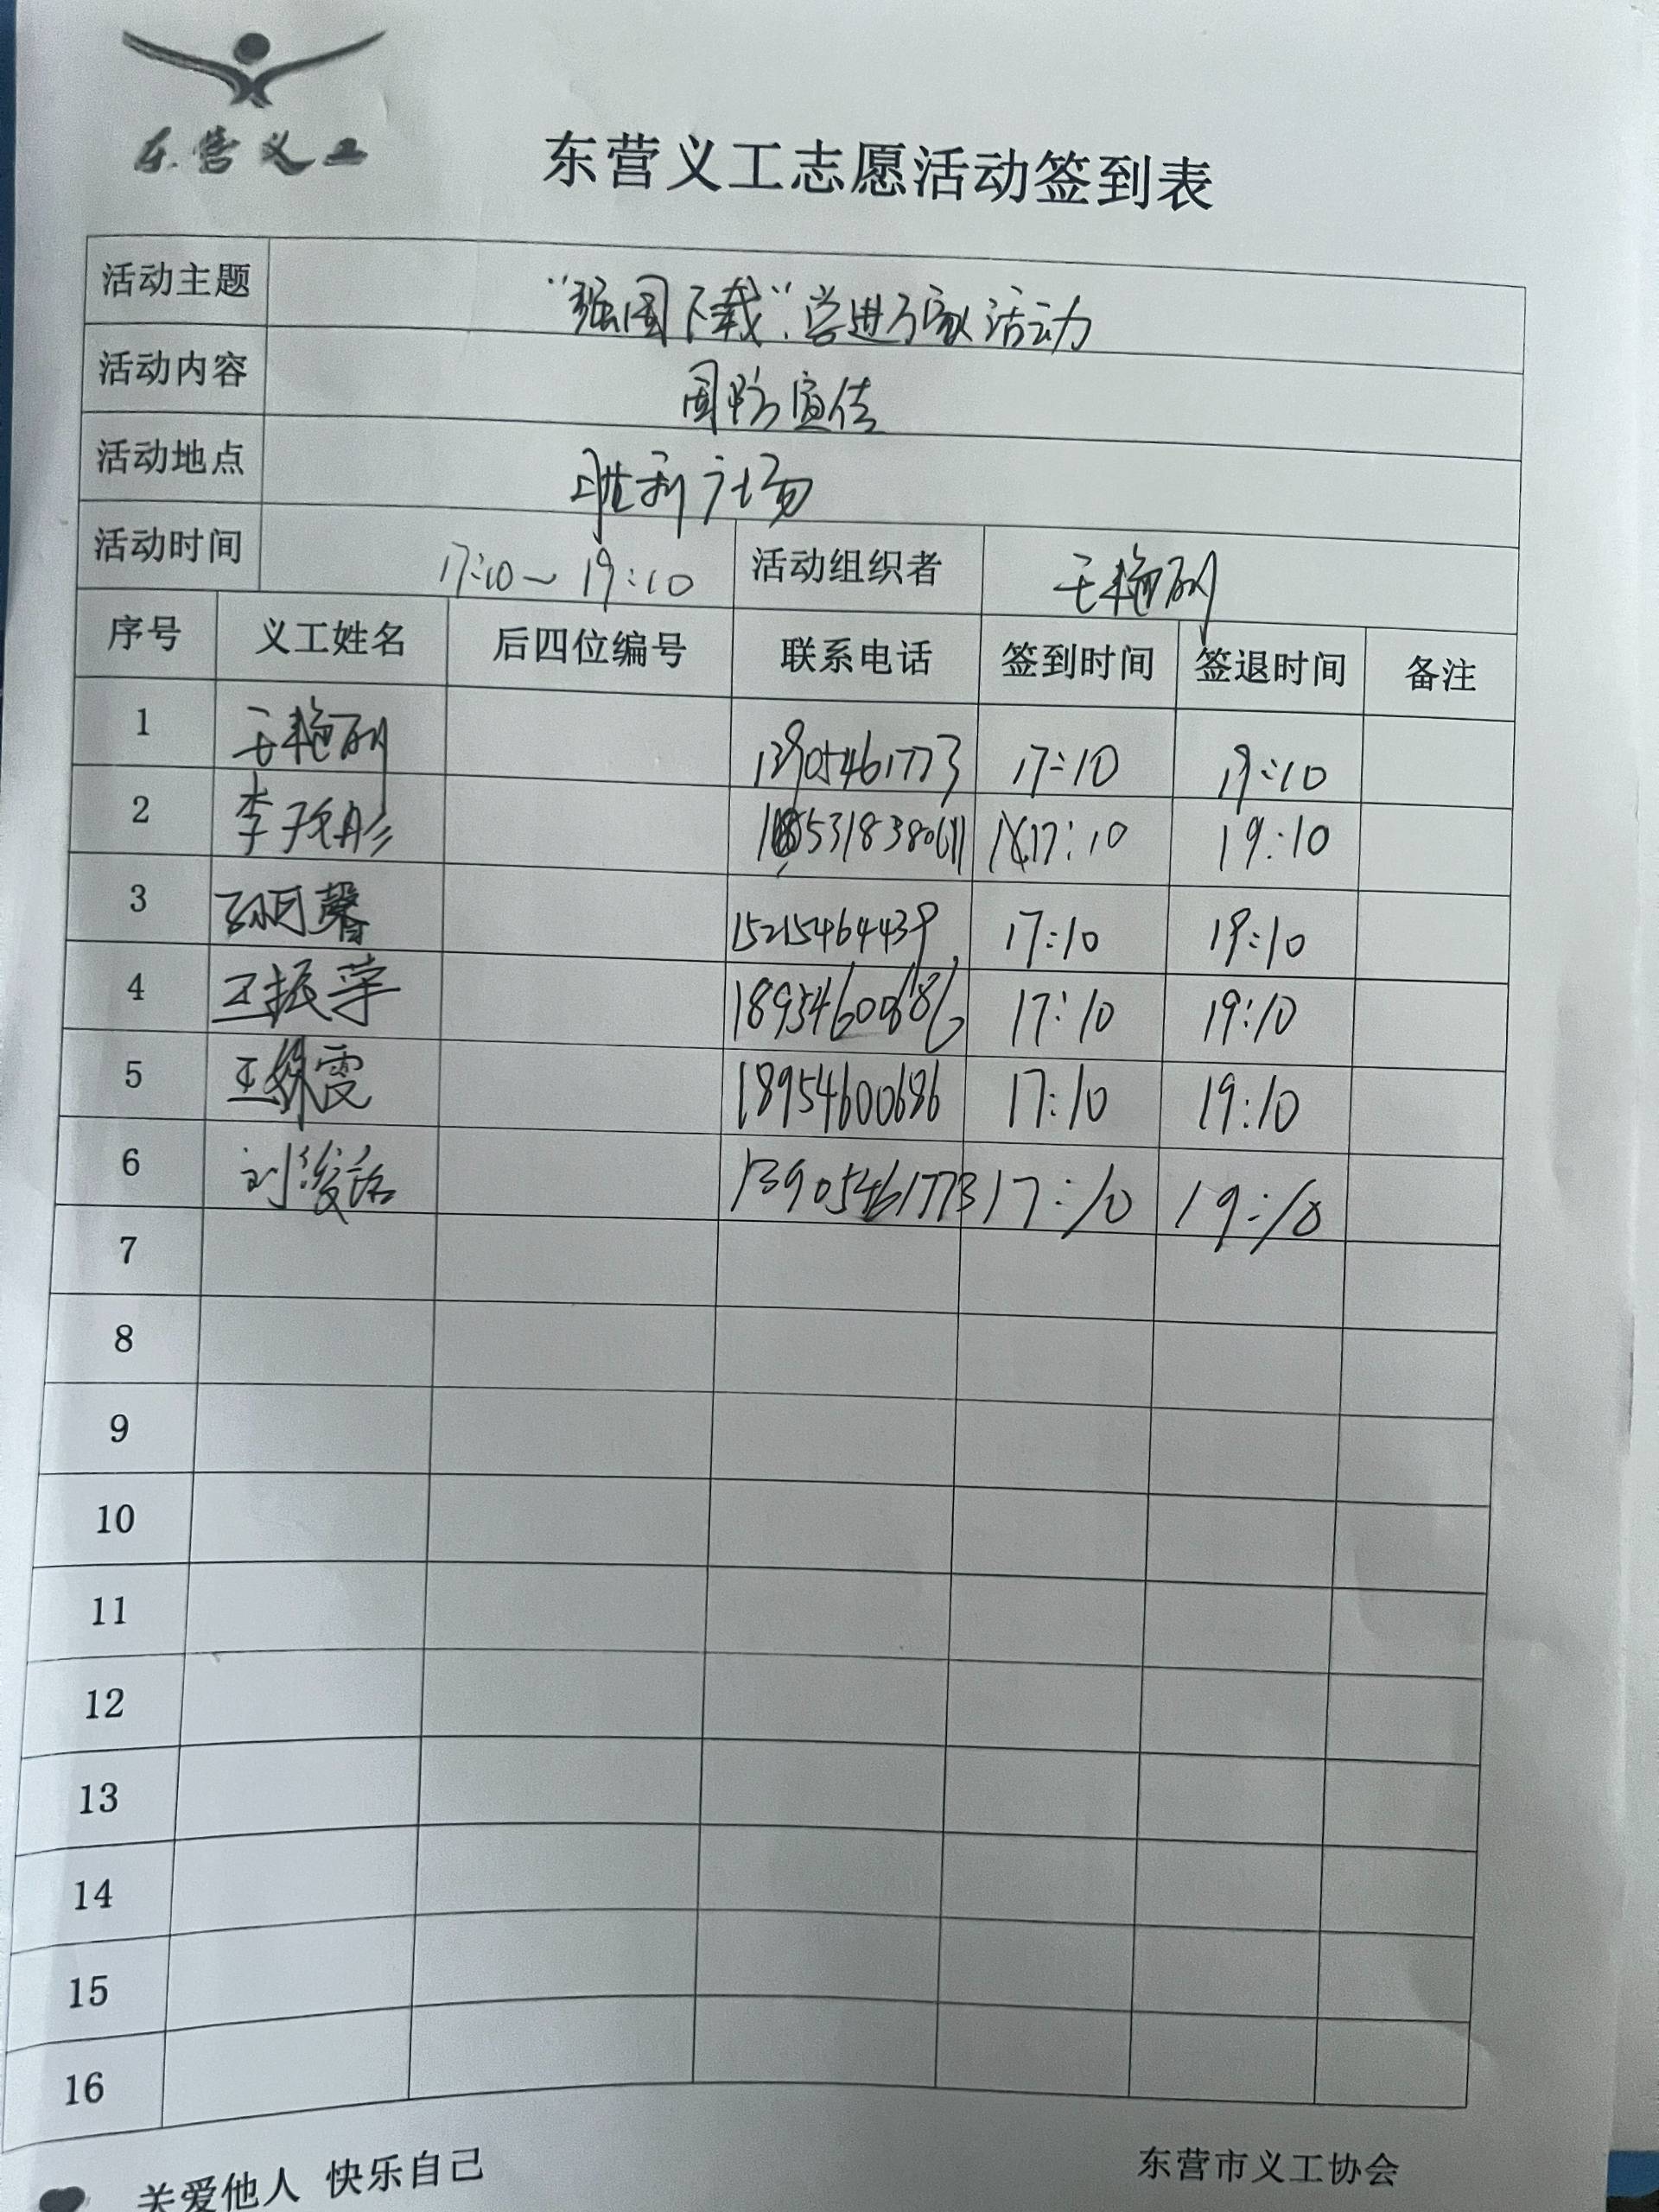 东营义工
东营义工志愿活动签到表
活动主题 "强国下载"学进万家活动
活动内容 国防宣传
活动地点 胜利广场
活动时间 17:10~19:10 活动组织者 王艳丽
序号 义工姓名 后四位编号 联系电话 签到时间 签退时间 备注
1 王艳丽 13905461773 17:10 19:10
2 李 彤 17:10 19:10
3 孙月馨 15215464439 17:10 19:10
4 王振 17:10 19:10
5 王 雯 18954600686 17:10 19:10
6 刘俊 13905461773 17:10 19:10
7
8
9
10
11
12
13
14
15
16
关爱他人 快乐自己 东营市义工协会